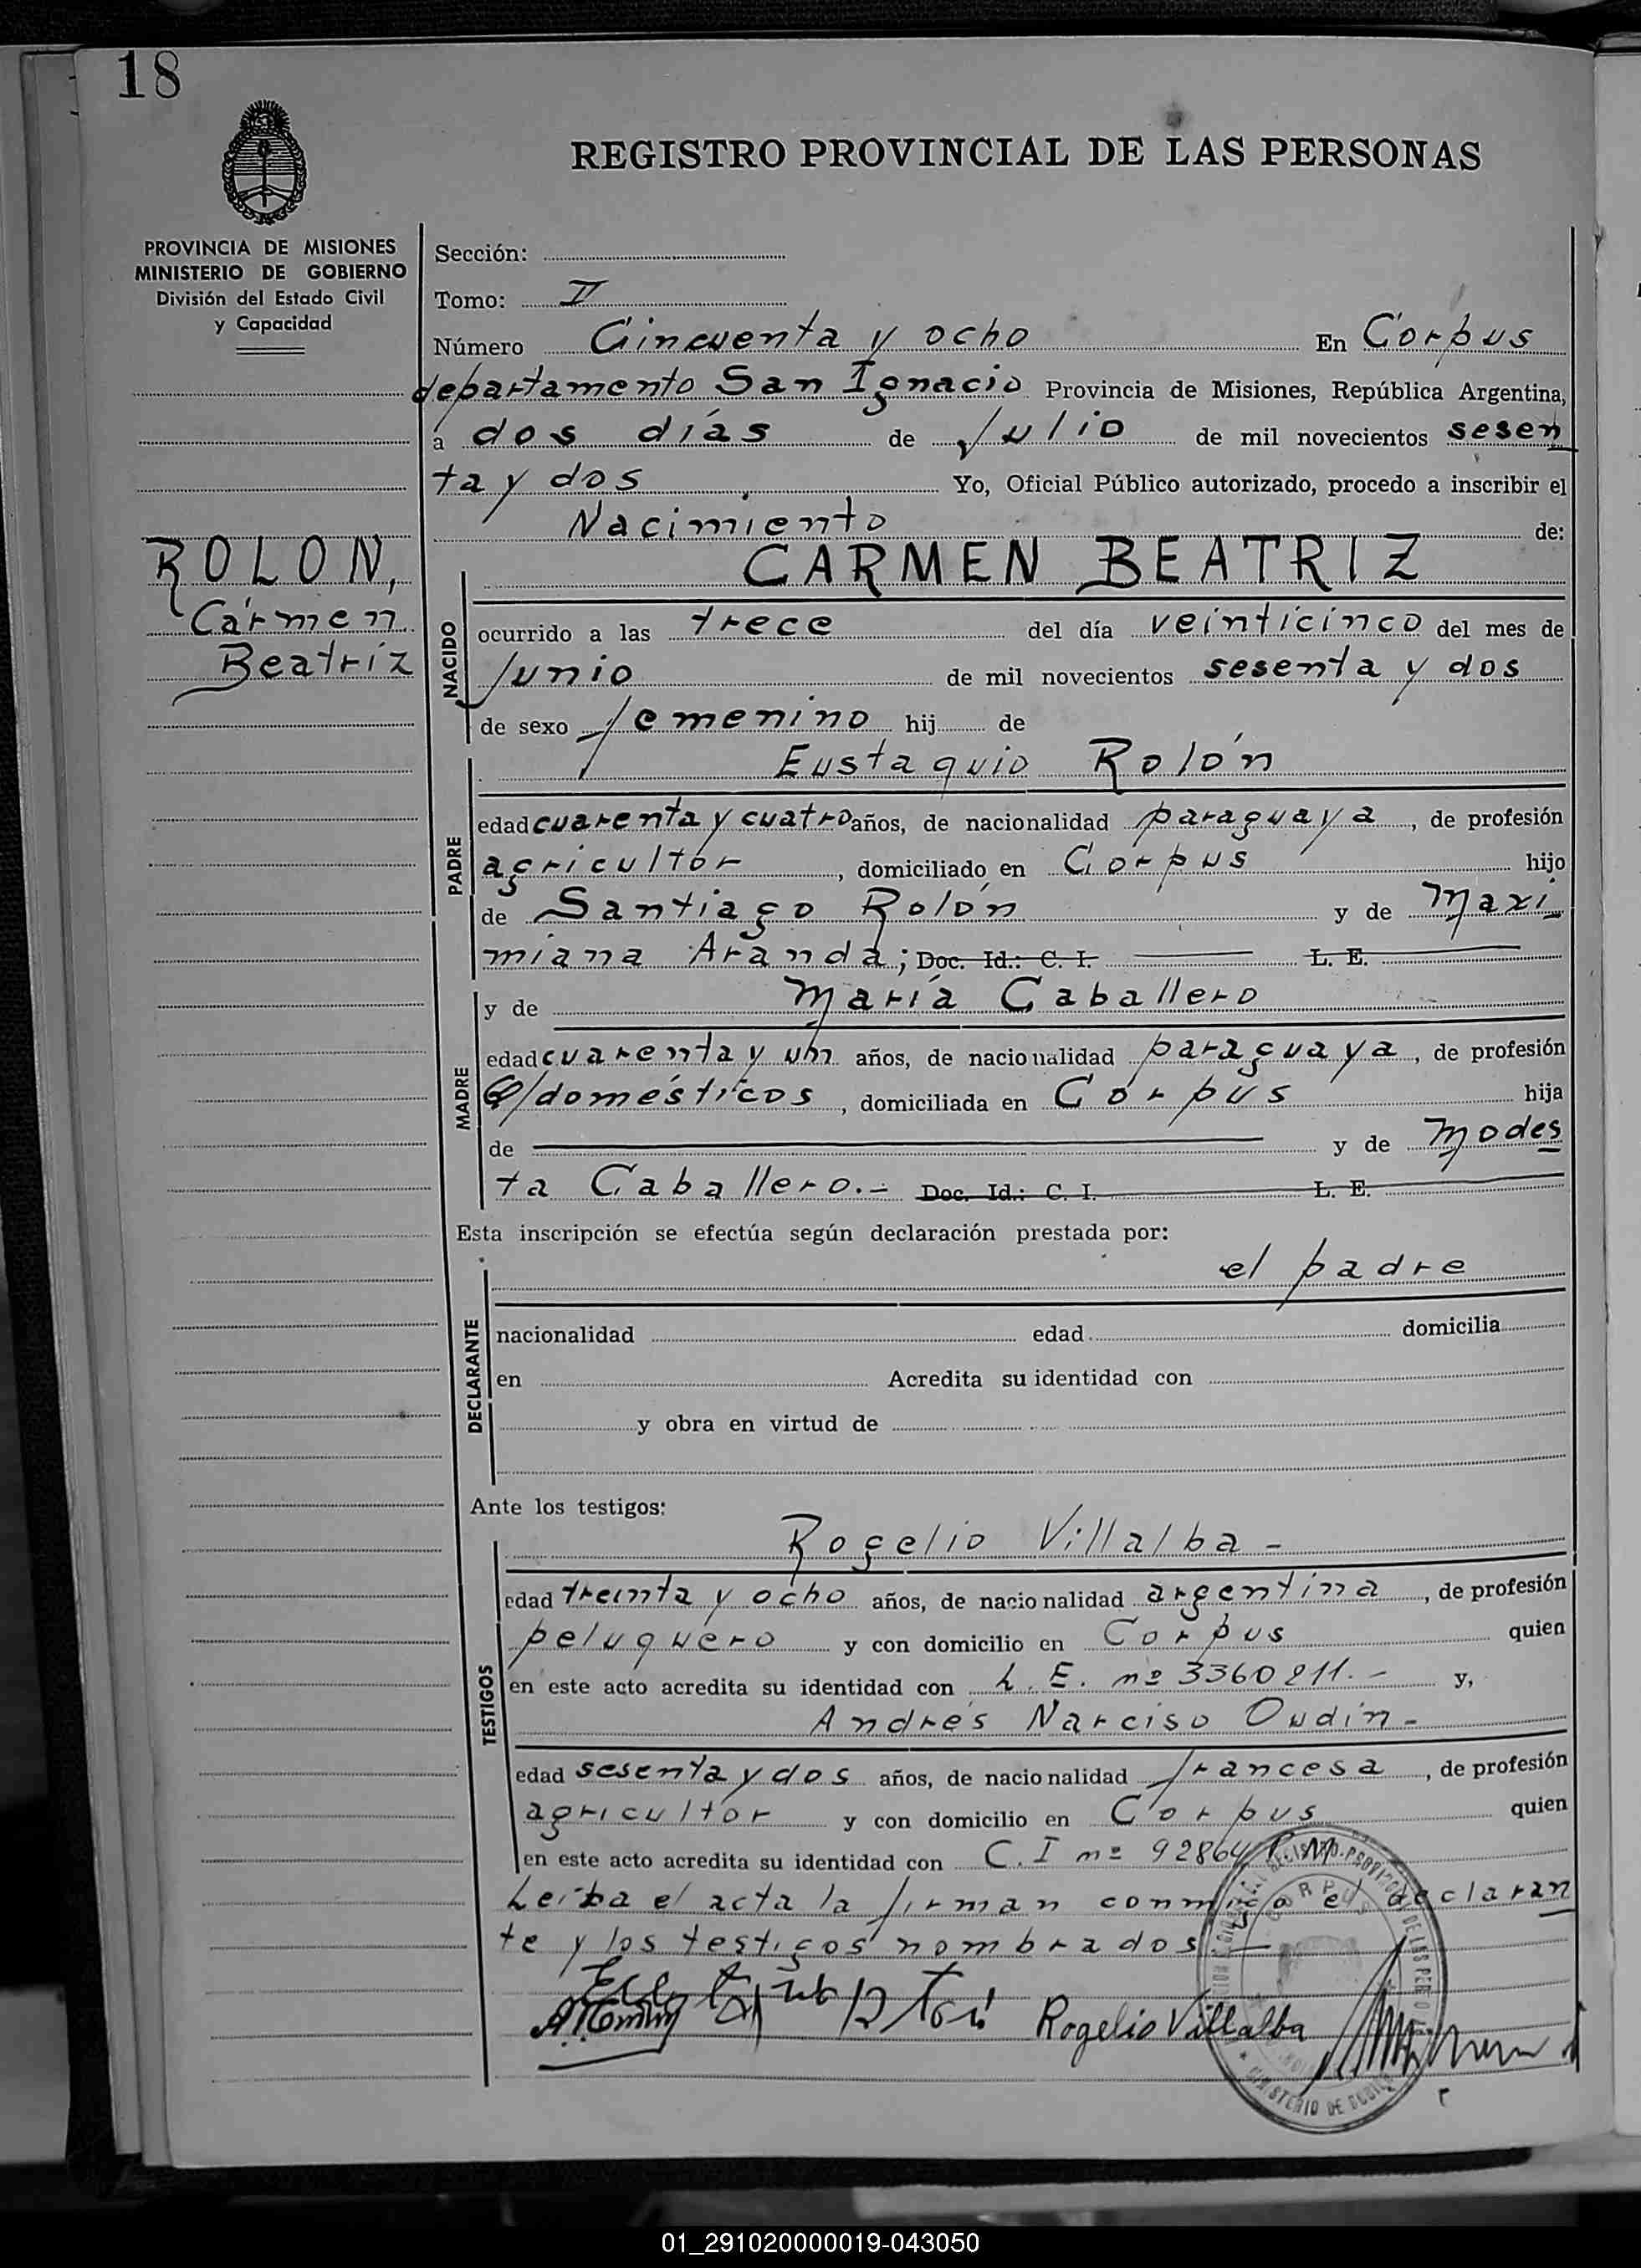 18
REGISTRO PROVINCIAL DE LAS PERSONAS
PROVINCIA DE MISIONES
MINISTERIO DE GOBIERNO
División del Estado Civil
y Capacidad
ROLON,
Carmen
Beatriz
Sección:
Tomo: II
Número Cincuenta y ocho En Corpus
departamento San Ignacio Provincia de Misiones, República Argentina,
a dos días de Julio de mil novecientos sesen
ta y dos Yo, Oficial Público autorizado, procedo a inscribir el
Nacimiento de:
CARMEN BEATRIZ
NACIDO
ocurrido a las trece del día veinticinco del mes de
Junio de mil novecientos sesenta y dos
de sexo femenino hij de
Eustaquio Rolón
PADRE
edad cuarenta y cuatro años, de nacionalidad paraguaya, de profesión
agricultor, domiciliado en Corpus hijo
de Santiago Rolón y de Maxi
miana Aranda; Doc. Id.: C. I. L. E.
y de María Caballero
MADRE
edad cuarenta y un años, de nacionalidad paraguaya, de profesión
Q/domésticos, domiciliada en Corpus hija
de y de Modes
ta Caballero.- Doc. Id.: C. I. L. E.
Esta inscripción se efectúa según declaración prestada por:
el padre
DECLARANTE
nacionalidad edad domicilia
en Acredita su identidad con
y obra en virtud de
Ante los testigos:
Rogelio Villalba -
TESTIGOS
edad treinta y ocho años, de nacionalidad argentina, de profesión
peluquero y con domicilio en Corpus quien
en este acto acredita su identidad con L. E. nº 3360211.- y,
Andres Narciso Oudin-
edad sesenta y dos años, de nacionalidad francesa, de profesión
agricultor y con domicilio en Corpus quien
en este acto acredita su identidad con C. I nº 92864 P. M.
Leída el acta la firman conmigo el declaran
te y los testigos nombrados
Rogelio Villalba
CORPUS
MINISTERIO DE
01_291020000019-043050